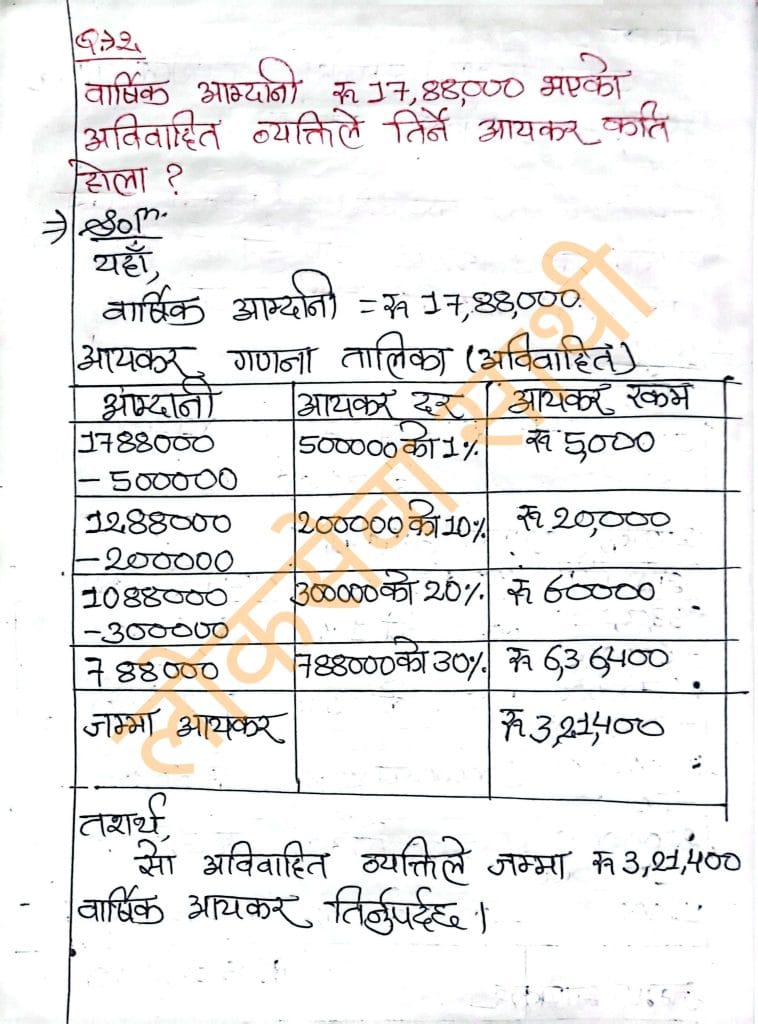 Q.2
वार्षिक आम्दानी रू 17,88,000 भएको
अविवाहित व्यक्तिले तिर्ने आयकर कति
होला ?
⇒ Solⁿ.
यहाँ,
वार्षिक आम्दानी = रू 17,88,000.
आयकर गणना तालिका (अविवाहित)
आम्दानी आयकर दर आयकर रकम
1788000 500000 को 1% रू 5,000
-500000
1288000 200000 को 10% रू 20,000
-200000
1088000 300000 को 20% रू 60000
-300000
788000 788000 को 30% रू 6,36,400
जम्मा आयकर रू 3,21,400
तसर्थ,
सो अविवाहित व्यक्तिले जम्मा रू 3,21,400
वार्षिक आयकर तिर्नुपर्दछ।
लोकसेवा साथी